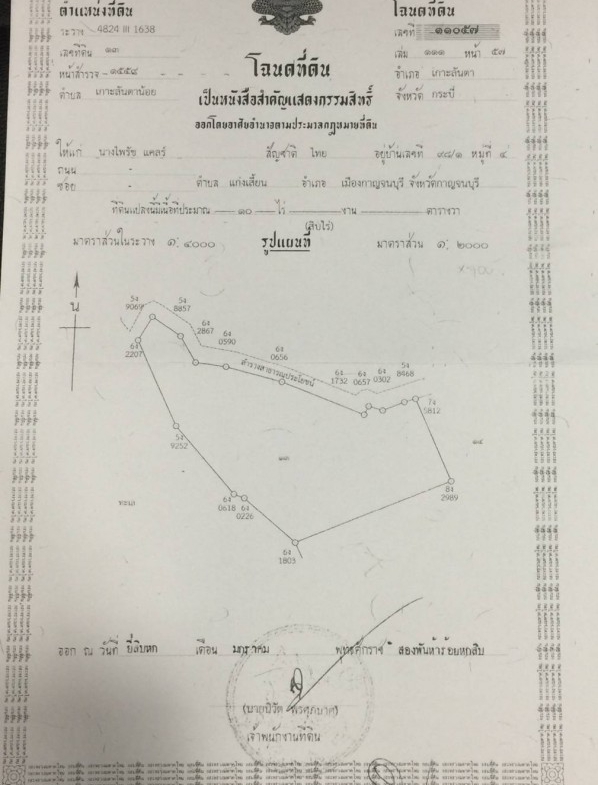 ตำแหน่งที่ดิน
ระวาง 4824 III 1638
เลขที่ดิน ๑๓
หน้าสำรวจ ๑๕๕๙
ตำบล เกาะลันตาน้อย
โฉนดที่ดิน
เลขที่ ๑๑๐๕๗
เล่ม ๑๑๑ หน้า ๕๗
อำเภอ เกาะลันตา
จังหวัด กระบี่
โฉนดที่ดิน
เป็นหนังสือสำคัญแสดงกรรมสิทธิ์
ออกโดยอาศัยอำนาจตามประมวลกฎหมายที่ดิน
ให้แก่ นางไพรัช แคลร์ สัญชาติ ไทย อยู่บ้านเลขที่ ๙๘/๑ หมู่ที่ ๔
ถนน -
ซอย - ตำบล แก่งเสี้ยน อำเภอ เมืองกาญจนบุรี จังหวัดกาญจนบุรี
ที่ดินแปลงนี้มีเนื้อที่ประมาณ ๑๐ ไร่ งาน ตารางวา
(สิบไร่)
มาตราส่วนในระวาง ๑: ๔๐๐๐ รูปแผนที่ มาตราส่วน ๑: ๒๐๐๐
น
54 9069
54 8857
64 2867
64 0590
64 0656
64 2207
ลำรางสาธารณประโยชน์
64 1732
64 0657
64 0302
54 8468
74 5812
54 9252
๑๓
๑๔
84 2989
ทะเล
64 0618
64 0226
64 1803
ออก ณ วันที่ ยี่สิบหก เดือน มกราคม พุทธศักราช สองพันห้าร้อยหกสิบ
เจ้าพนักงานที่ดิน